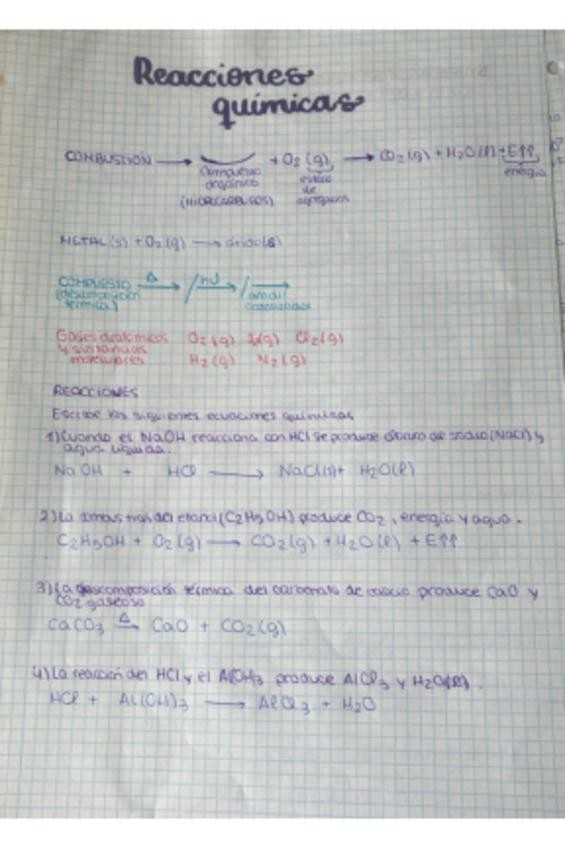 Reacciones
químicas
COMBUSTIÓN → + O2 (g) → CO2(g) + H2O(l) + E↑↑
compuesto orgánico estado de agregación energía
(HIDROCARBUROS)
METAL(s) + O2(g) → óxido(s)
COMPUESTO Δ→ / hν→ / →
(descomposición térmica)
Gases diatómicos O2(g) I2(g) Cl2(g)
y sustancias
moleculares H2(g) N2(g)
REACCIONES
Escribe las siguientes ecuaciones químicas
1) Cuando el NaOH reacciona con HCl se produce cloruro de sodio (NaCl) y
agua líquida.
NaOH + HCl → NaCl(s) + H2O(l)
2) La combustión del etanol (C2H5OH) produce CO2, energía y agua.
C2H5OH + O2(g) → CO2(g) + H2O(l) + E↑↑
3) La descomposición térmica del carbonato de calcio produce CaO y
CO2 gaseoso
CaCO3 Δ→ CaO + CO2(g)
4) La reacción del HCl y el Al(OH)3 produce AlCl3 y H2O(l).
HCl + Al(OH)3 → AlCl3 + H2O